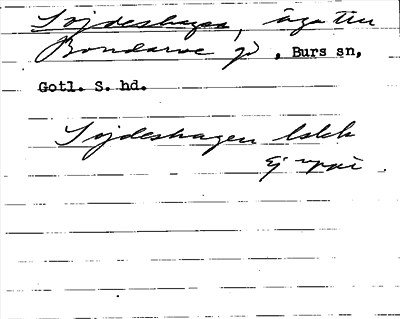 Sojdeshagen, äga till
Bondarve gd, Burs sn,
Gotl. S. hd.
Sojdeshagen lskk
Ej uppt.